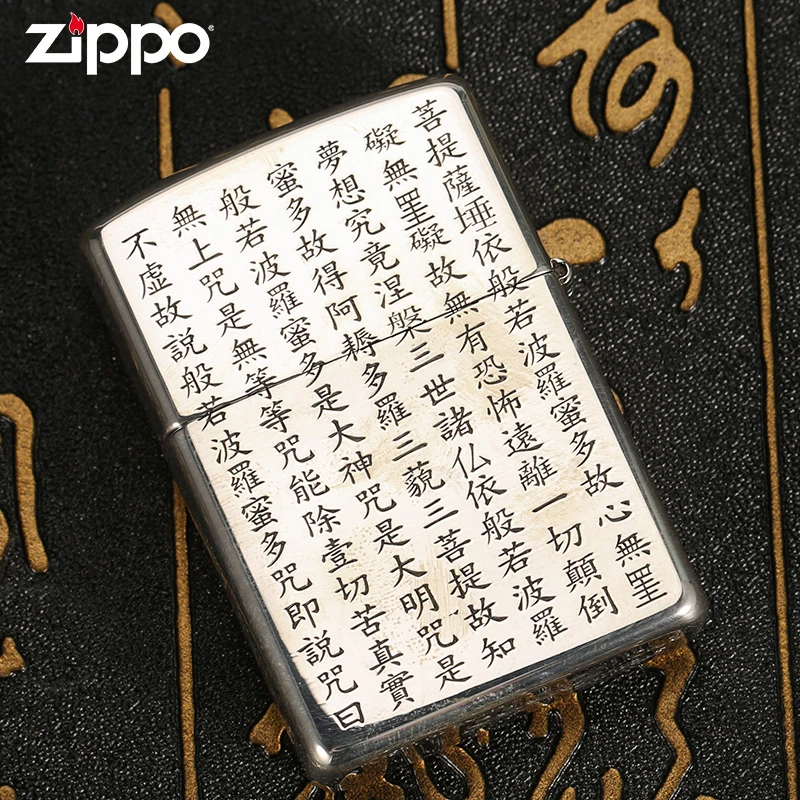 zippo
菩提薩埵依般若波羅蜜多故心無罣
礙無罣礙故無有恐怖遠離一切顛倒
夢想究竟涅槃三世諸仏依般若波羅
蜜多故得阿耨多羅三藐三菩提故知
般若波羅蜜多是大神咒是大明咒是
無上咒是無等等咒能除壹切苦真實
不虛故說般若波羅蜜多咒即說咒曰